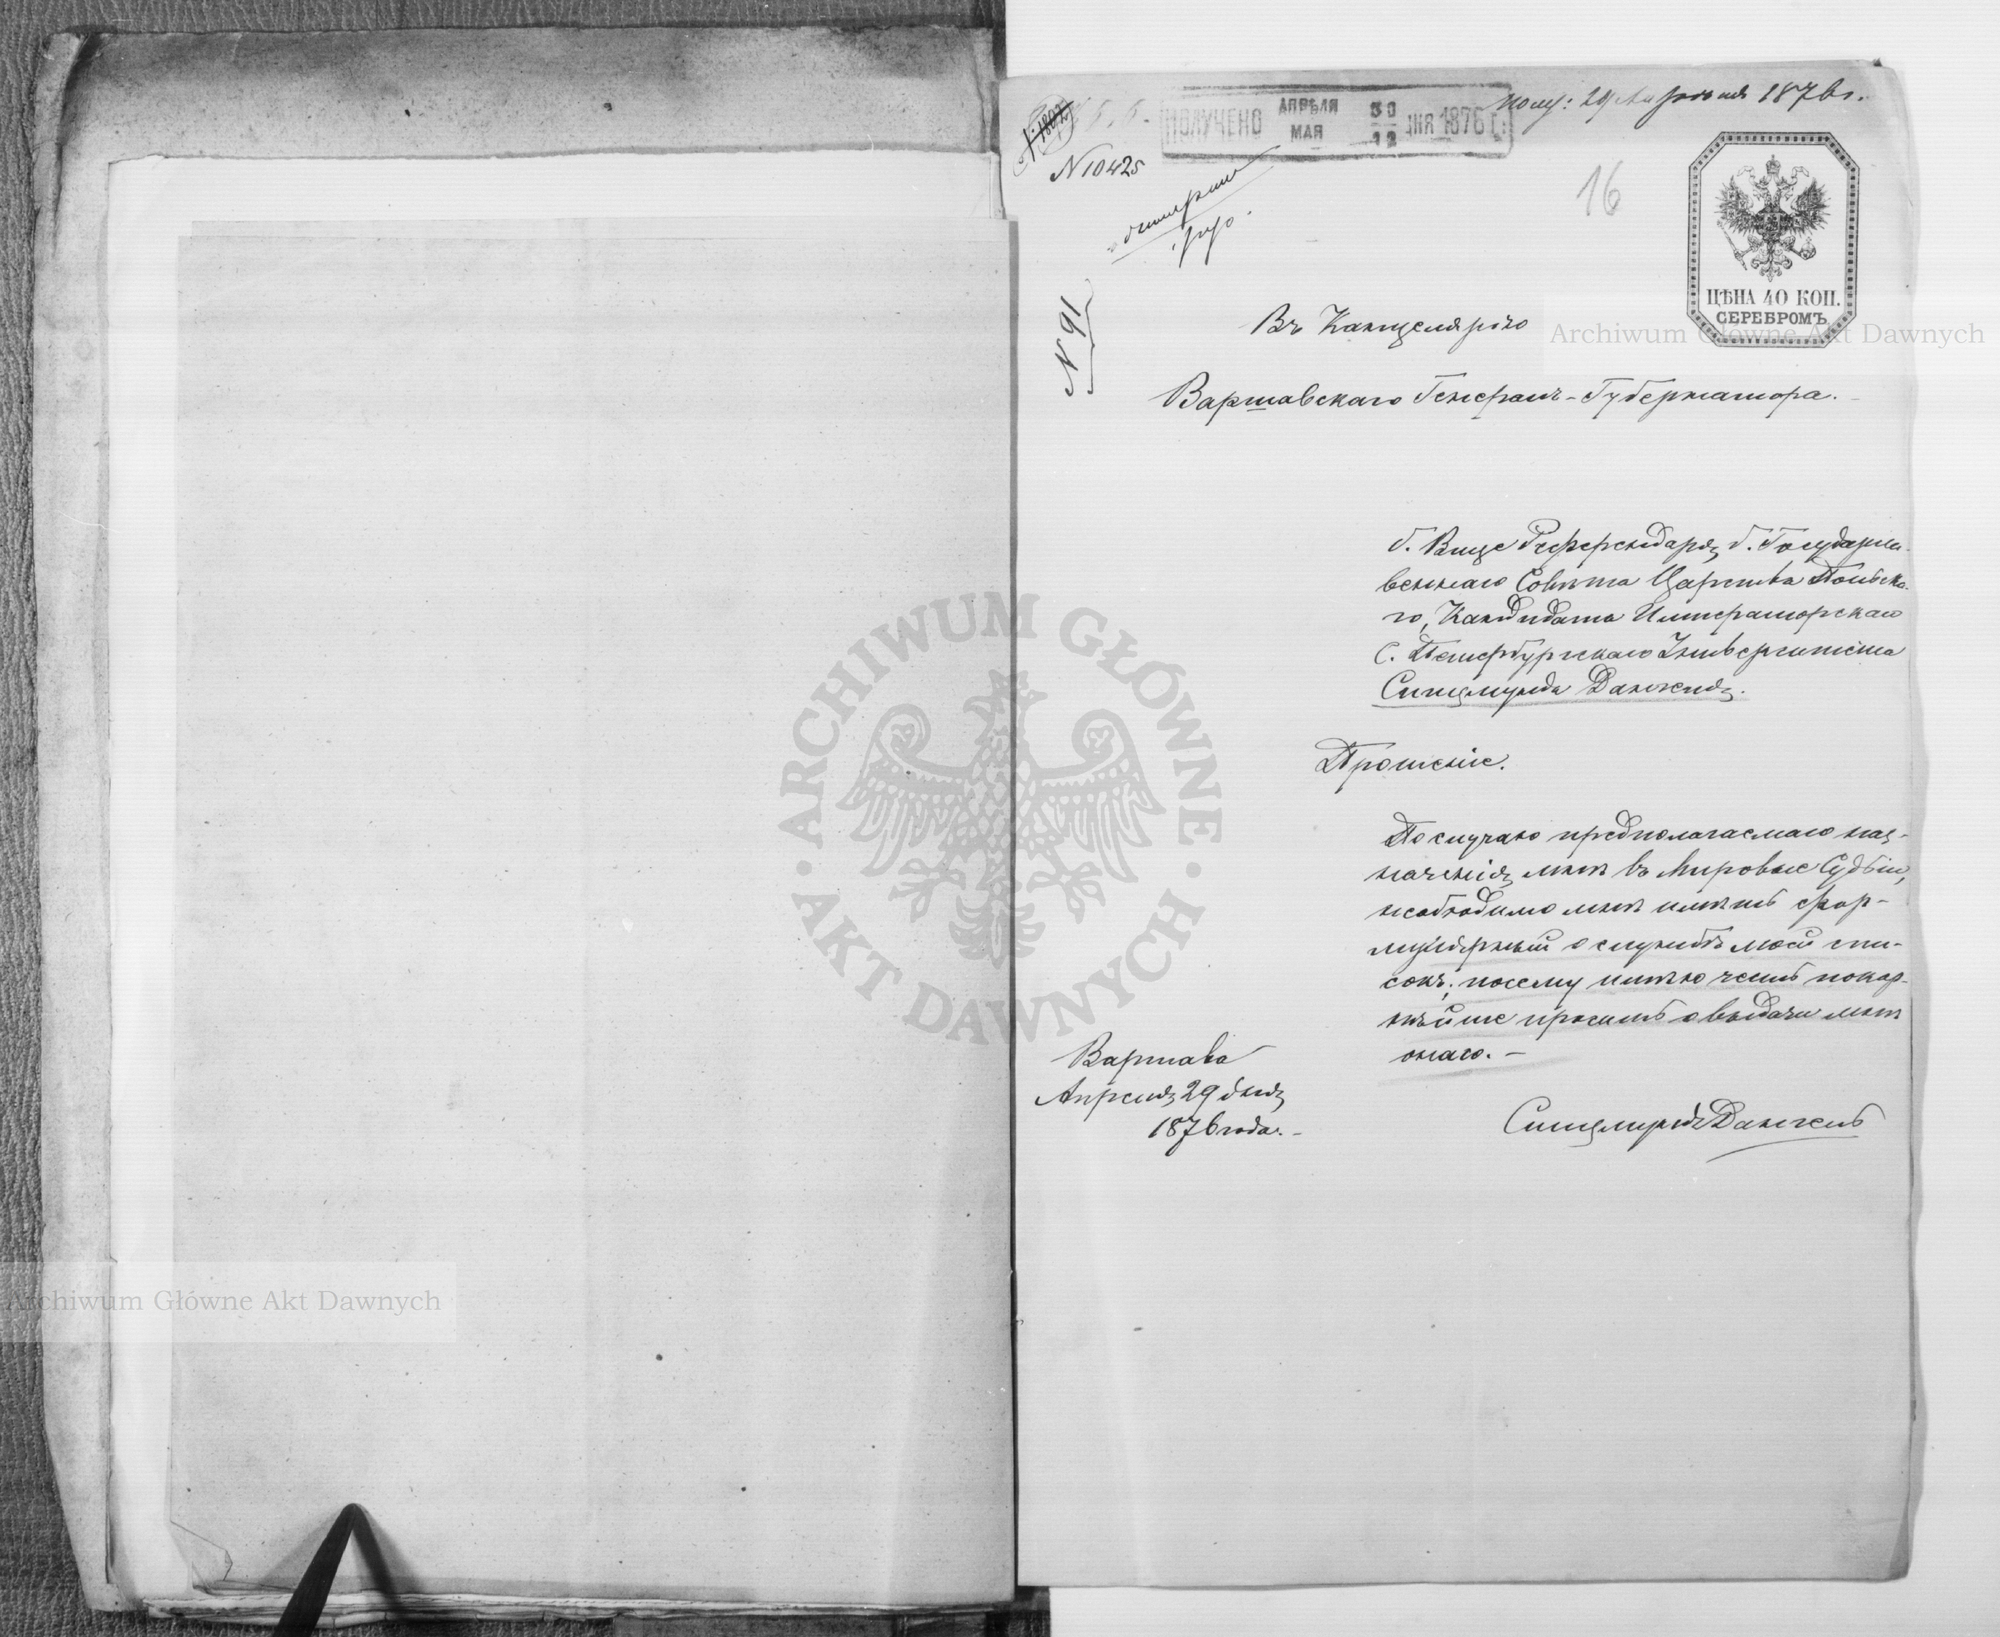 N 1802
N 10425
ПОЛУЧЕНО АПРѢЛЯ 30 МАЯ 12 ДНЯ 1876 Г.
Полу: 29 Апрѣля 1876 г.
16
N 91
ЦѢНА 40 КОП.
СЕРЕБРОМЪ
Въ Канцелярію
Варшавскаго Генералъ-Губернатора.
б. Вице Референдаря, б. Государст-
веннаго Совѣта Царства Польска-
го, Кандидата Императорскаго
С. Петербургскаго Университета
Сигизмунда Данкеля.
Прошеніе.
По случаю предполагаемаго наз-
наченія мнѣ въ Мировые Судьи,
необходимо мнѣ имѣть фор-
мулярный о службѣ моей спи-
сокъ; посему имѣю честь покор-
нѣйше просить о выдачи мнѣ
онаго. —
Варшава
Апреля 29 дня
1876 года. —
Archiwum Główne Akt Dawnych
ARCHIWUM GŁÓWNE AKT DAWNYCH
Archiwum Główne Akt Dawnych